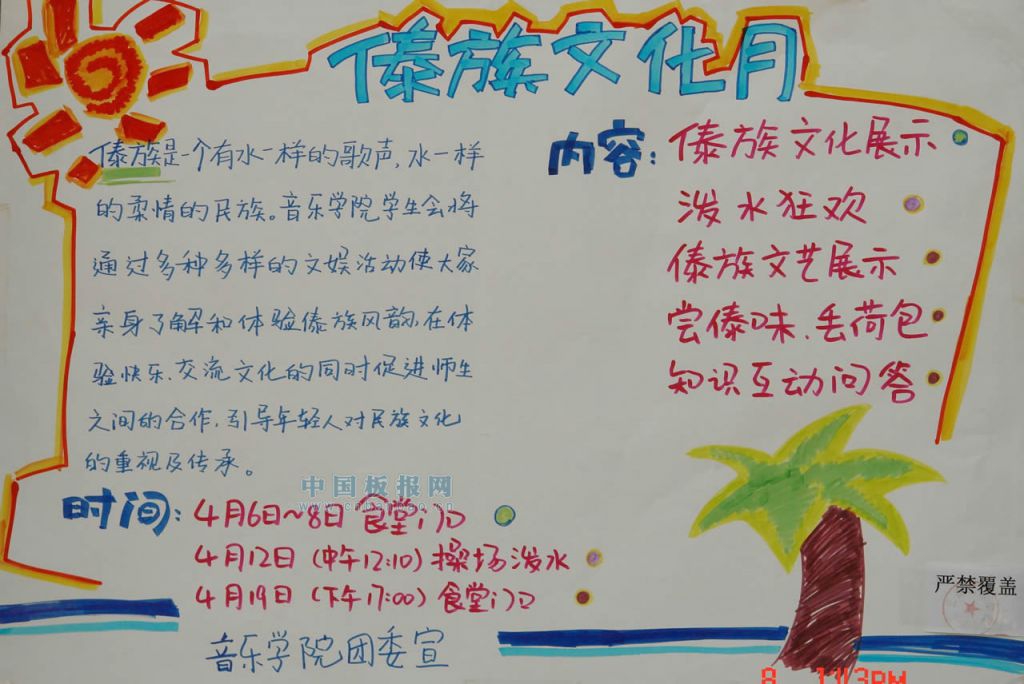 傣族文化月
傣族是一个有水一样的歌声,水一样
的柔情的民族。音乐学院学生会将
通过多种多样的文娱活动使大家
亲身了解和体验傣族风韵,在体
验快乐、交流文化的同时促进师生
之间的合作,引导年轻人对民族文化
的重视及传承。
内容:傣族文化展示
泼水狂欢
傣族文艺展示
尝傣味、丢荷包
知识互动问答
中国板报网
www.cnbanbao.cn
时间:4月6日~8日 食堂门口
4月12日 (中午12:10) 操场泼水
4月19日 (下午17:00) 食堂门口
音乐学院团委宣
严禁覆盖